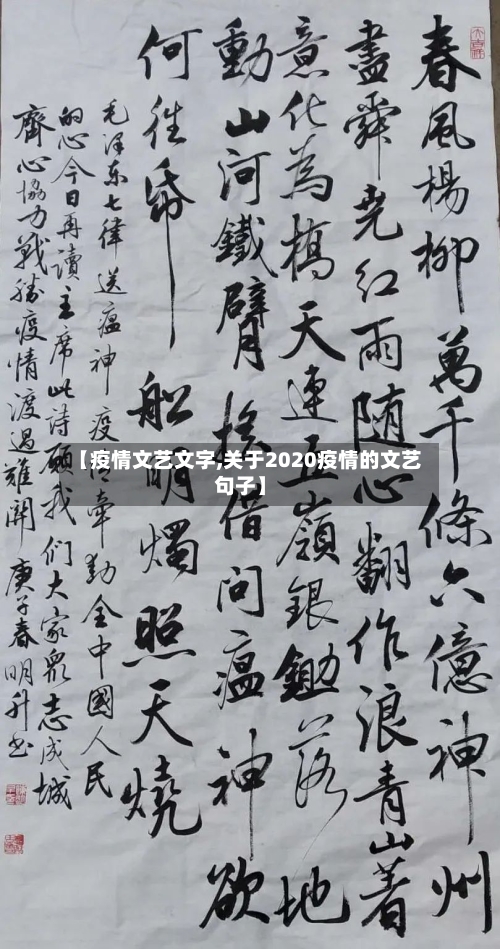 春風楊柳萬千條六億神州
盡舜堯紅雨随心翻作浪青山著
意化為橋天連五嶺銀鋤落地
動山河鐵臂搖借問瘟神欲
何往帋船明燭照天燒
毛泽东七律送瘟神疫情牽動全中國人民
的心今日再讀主席此诗願我们大家眾志成城
齊心協力戰勝疫情渡過難關庚子春明升书
【疫情文艺文字,关于2020疫情的文艺
句子】